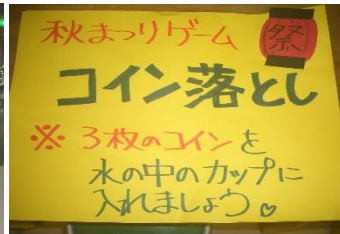 秋まつりゲーム
祭
コイン落とし
※ 3枚のコインを
水の中のカップに
入れましょう。